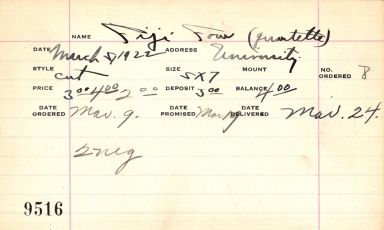 NAME Fiji Four (quartette)
DATE March 8 1922 ADDRESS University
STYLE cut SIZE 5X7 MOUNT NO. ORDERED 8
PRICE 3.00 4.00 2.00 DEPOSIT 3.00 BALANCE 4.00
DATE ORDERED Mar. 9. DATE PROMISED Mar DATE DELIVERED Mar. 24.
2 neg
9516